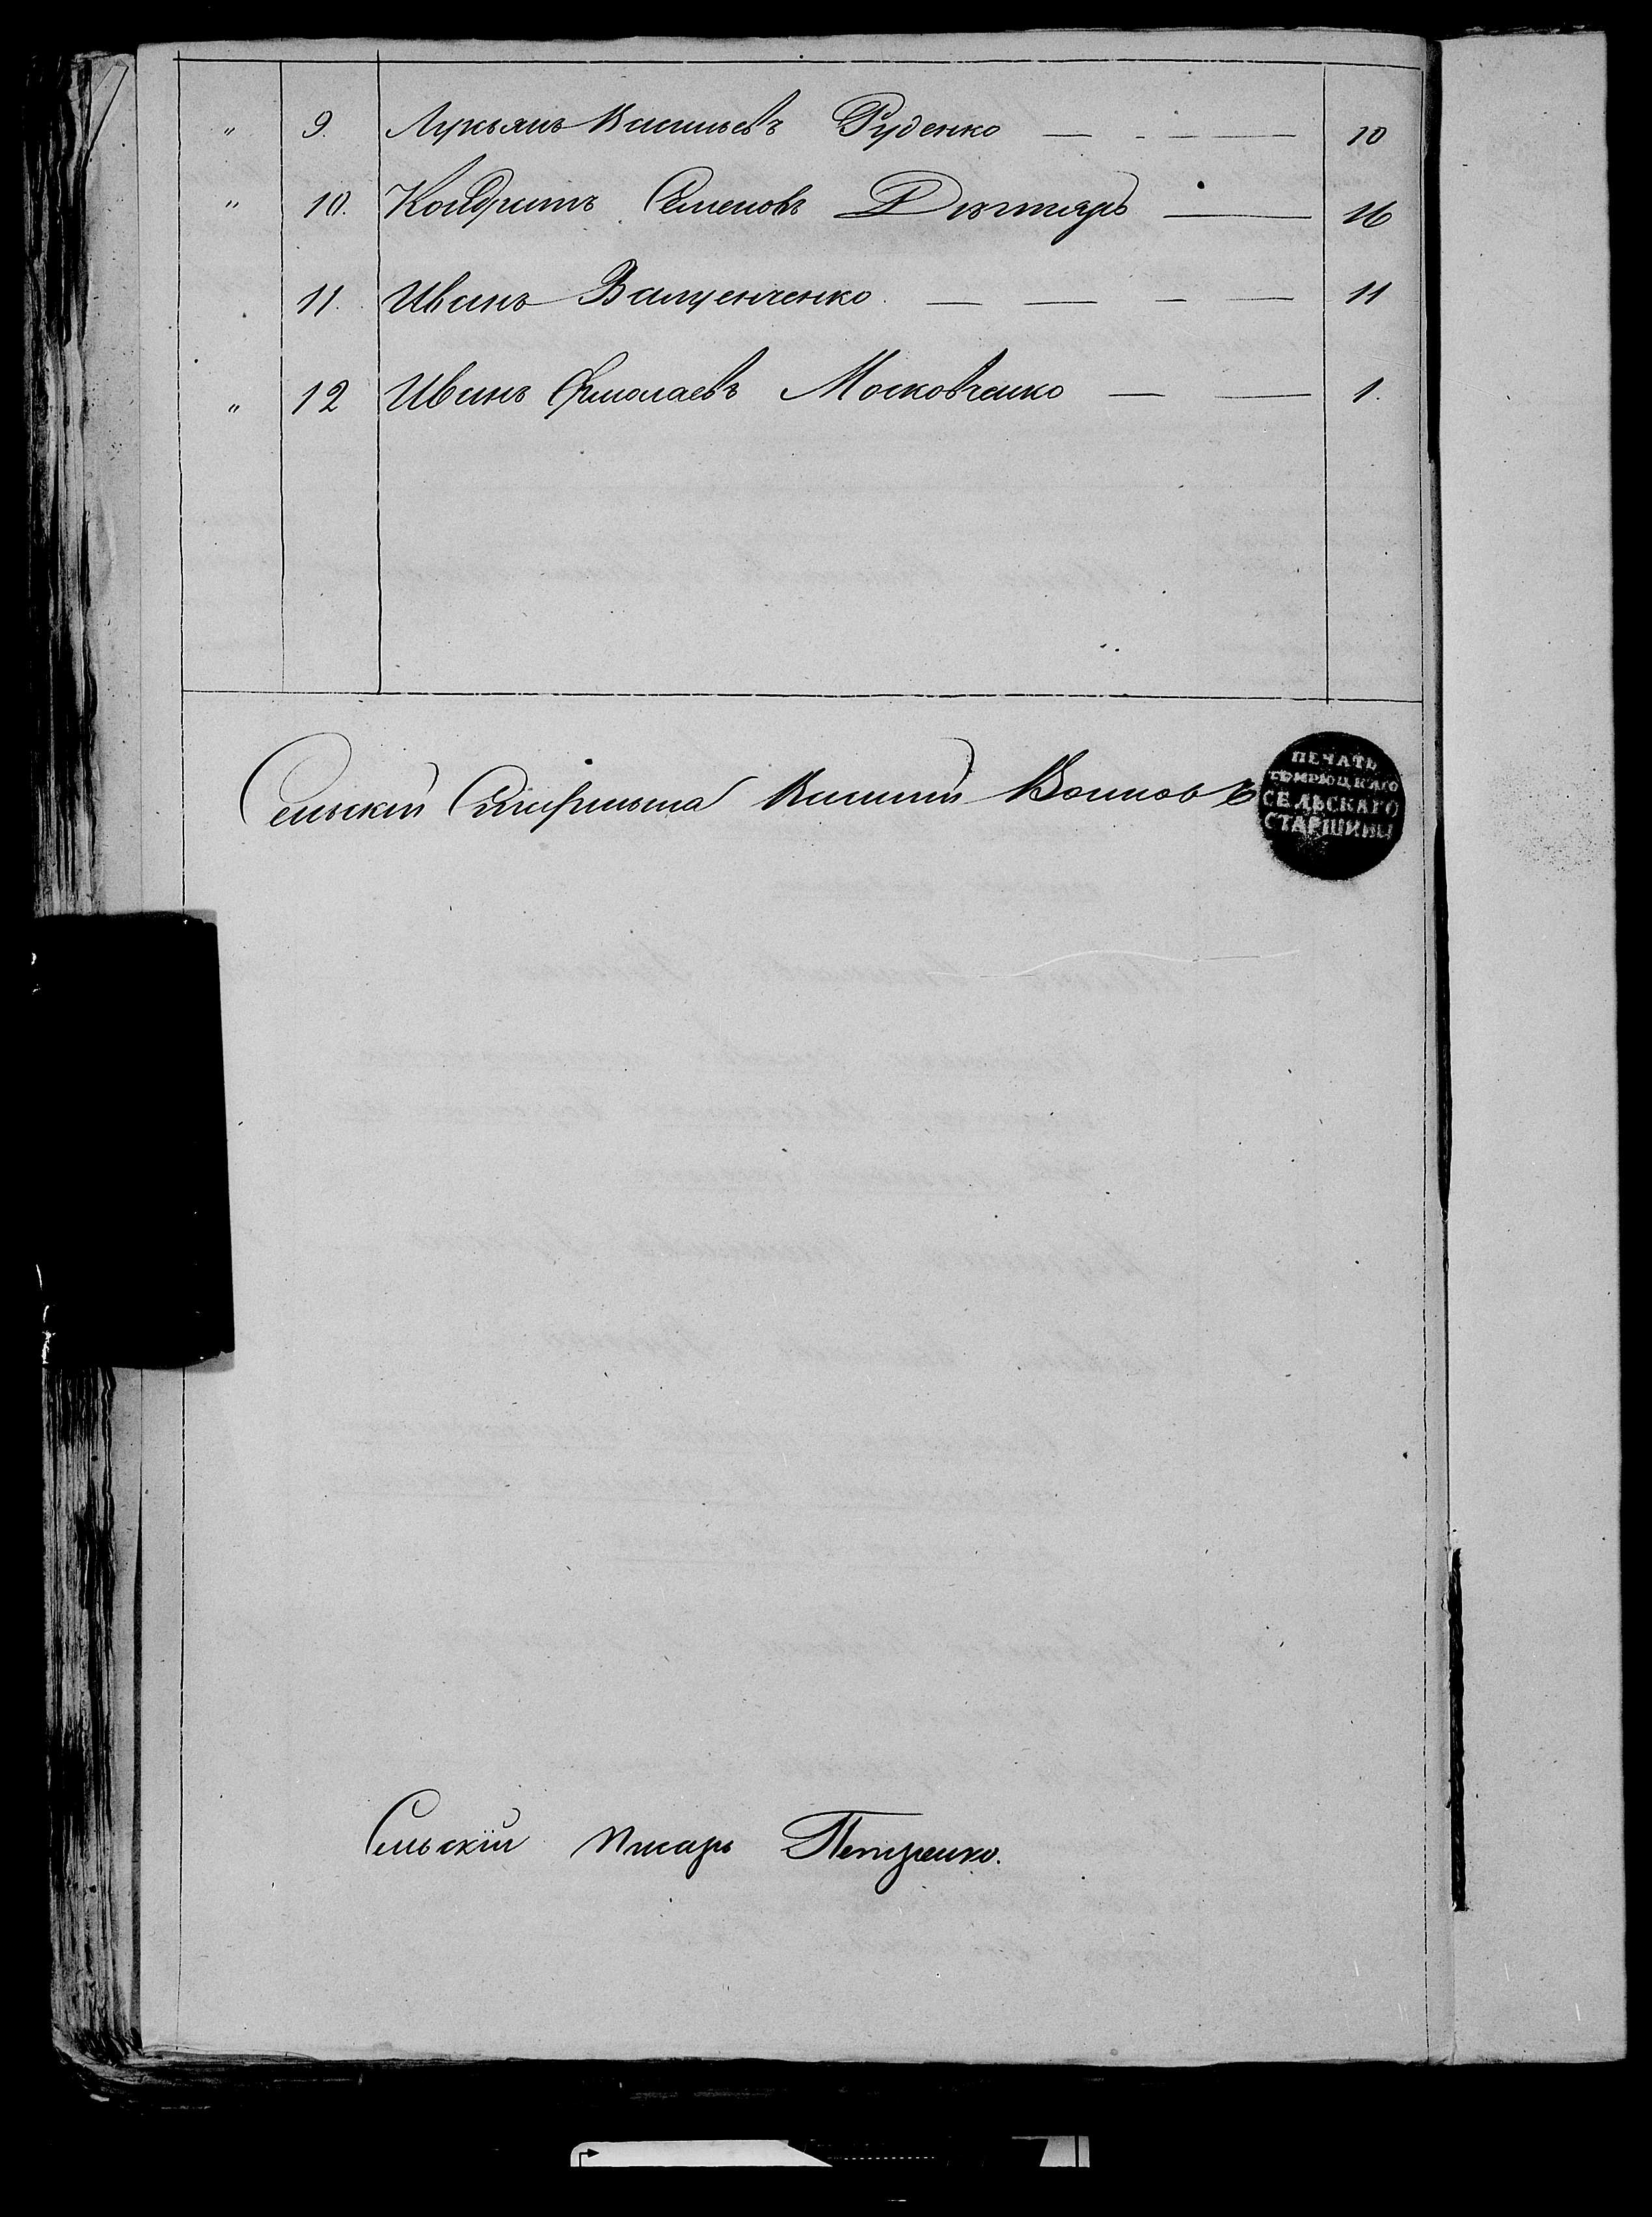 " 9. Лукьянъ Васильевъ Руденко — - - — 10
" 10. Кондратъ Семеновъ Дихтяръ — 16
" 11. Иванъ Валуенченко. — — - — 11
" 12 Иванъ Ермолаевъ Московченко — — 1.
Сельскій Старшина Василій Волновъ
ПЕЧАТЬ
ТЕМРЮЦКАГО
СЕЛЬСКАГО
СТАРШИНЫ
Сельскій Писарь Петренко.